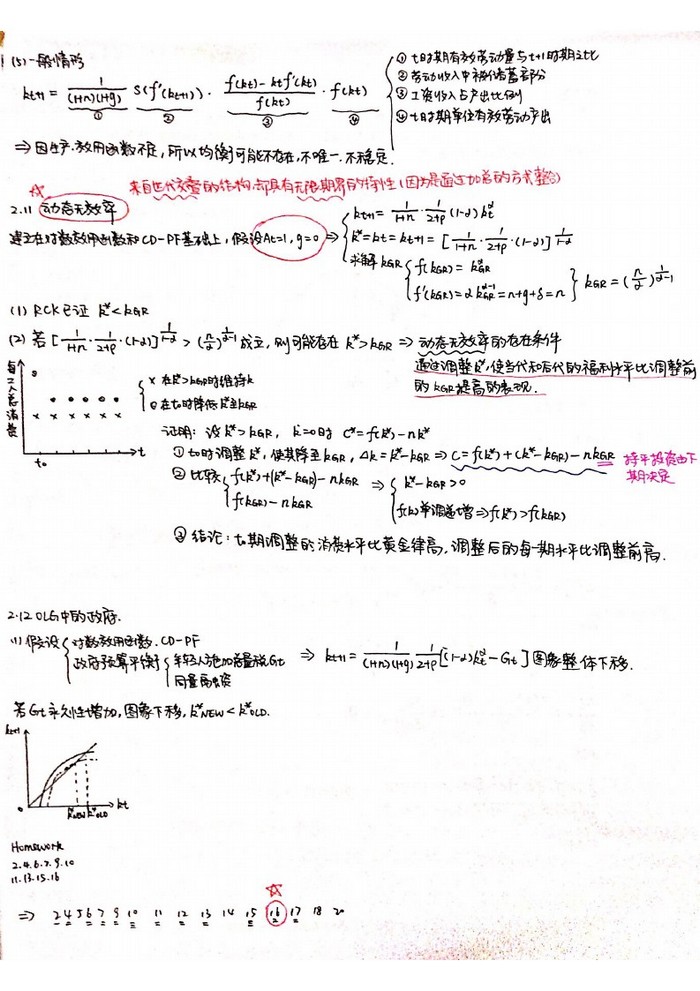 (5)一般情形
k_{t+1} = \frac{1}{(1+n)(1+g)} s(f'(k_{t+1})) · \frac{f(k_t) - k_t f'(k_t)}{f(k_t)} · f(k_t)
① ② ③ ④
① t时期有效劳动量与t+1时期之比
② 劳动收入中被储蓄部分
③ 工资收入占产出比例
④ t时期单位有效劳动产出
⇒ 因生产.效用函数不定, 所以均衡可能不存在,不唯一.不稳定.
来自世代交叠的结构,却具有无限期界的特性(因为是通过加总的方式整合)
2.11 动态无效率
建立在对数效用函数和CD-PF基础上, 假设At=1, g=0 ⇒
k_{t+1} = \frac{1}{1+n} · \frac{1}{2+ρ} (1-α) k_t^α
k* = k_t = k_{t+1} = [\frac{1}{1+n} · \frac{1}{2+ρ} · (1-α)]^{\frac{1}{1-α}}
求解 k_{GR}
f(k_{GR}) = k_{GR}^α
f'(k_{GR}) = α k_{GR}^{α-1} = n+g+δ = n
k_{GR} = (\frac{n}{α})^{\frac{1}{α-1}}
(1) RCK已证 k* < k_{GR}
(2) 若 [\frac{1}{1+n} · \frac{1}{2+ρ} · (1-α)]^{\frac{1}{1-α}} > (\frac{n}{α})^{\frac{1}{α-1}} 成立, 则可能存在 k* > k_{GR} ⇒ 动态无效率的存在条件
通过调整k*,使当代和后代的福利水平比调整前
的k_{GR}提高的表现.
每工人总消费
t
t₀
× 在k*>k_{GR}时维持k
o 在t₀时降低k*至k_{GR}
证明: 设k*>k_{GR}, k̇=0时 C*=f(k*)-nk*
① t₀时调整k*, 使其降至k_{GR}, Δk=k*-k_{GR} ⇒ C=f(k*)+(k*-k_{GR})-nk_{GR}
持平投资由下
期决定
② 比较
f(k*)+(k*-k_{GR})-nk_{GR}
f(k_{GR})-nk_{GR}
⇒
k*-k_{GR}>0
f(k)单调递增⇒f(k*)>f(k_{GR})
③ 结论: t₀期调整的消费水平比黄金律高, 调整后的每一期水平比调整前高.
2.12 OLG中的政府.
(1) 假设
对数效用函数. CD-PF
政府预算平衡
⇒ k_{t+1} = \frac{1}{(1+n)(1+g)} \frac{1}{2+ρ} [(1-α)k_t^α - G_t] 图象整体下移.
若Gt永久性增加, 图象下移, k*_{NEW} < k*_{OLD}.
k_{t+1}
o
k*_{NEW} k*_{OLD}
k_t
Homework
2.4.6.7.9.10
11.13.15.16
⇒ 2 4 5 6 7 9 10 11 12 13 14 15 16 17 18 20